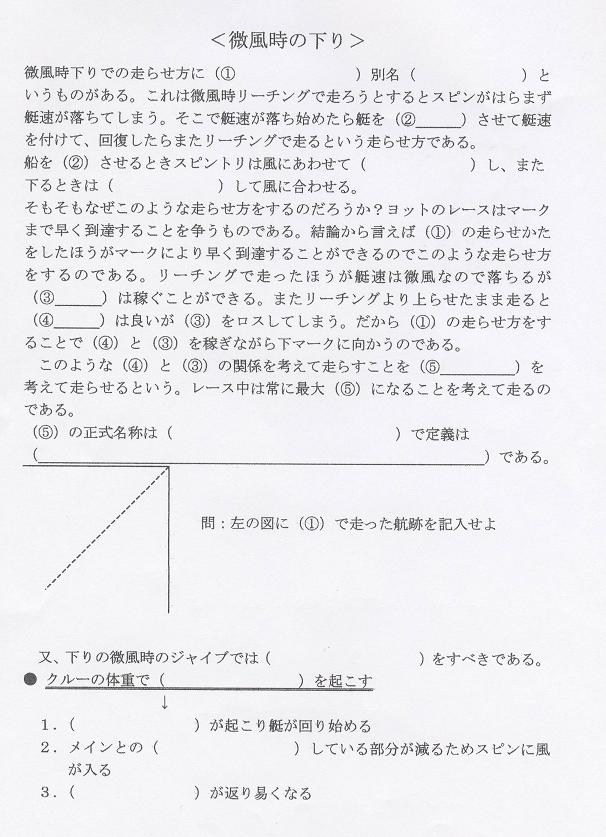 ＜微風時の下り＞
微風時下りでの走らせ方に（①　　　　　　　　）別名（　　　　　　　）と
いうものがある。これは微風時リーチングで走ろうとするとスピンがはらまず
艇速が落ちてしまう。そこで艇速が落ち始めたら艇を（②______）させて艇速
を付けて、回復したらまたリーチングで走るという走らせ方である。
船を（②）させるときスピントリは風にあわせて（　　　　　　　）し、また
下るときは（　　　　　　　）して風に合わせる。
そもそもなぜこのような走らせ方をするのだろうか？ヨットのレースはマーク
まで早く到達することを争うものである。結論から言えば（①）の走らせかた
をしたほうがマークにより早く到達することができるのでこのような走らせ方
をするのである。リーチングで走ったほうが艇速は微風なので落ちるが
（③______）は稼ぐことができる。またリーチングより上らせたまま走ると
（④______）は良いが（③）をロスしてしまう。だから（①）の走らせ方をす
ることで（④）と（③）を稼ぎながら下マークに向かうのである。
　このような（④）と（③）の関係を考えて走らすことを（⑤__________）を
考えて走らせるという。レース中は常に最大（⑤）になることを考えて走るの
である。
（⑤）の正式名称は（　　　　　　　　　　　　　　　）で定義は
（____________________________________________）である。
問：左の図に（①）で走った航跡を記入せよ
又、下りの微風時のジャイブでは（　　　　　　　　　　）をすべきである。
● クルーの体重で（　　　　　　　　　）を起こす
↓
１．（　　　　　　　　）が起こり艇が回り始める
２．メインとの（　　　　　　　　　）している部分が減るためスピンに風
が入る
３．（　　　　　　　　）が返り易くなる